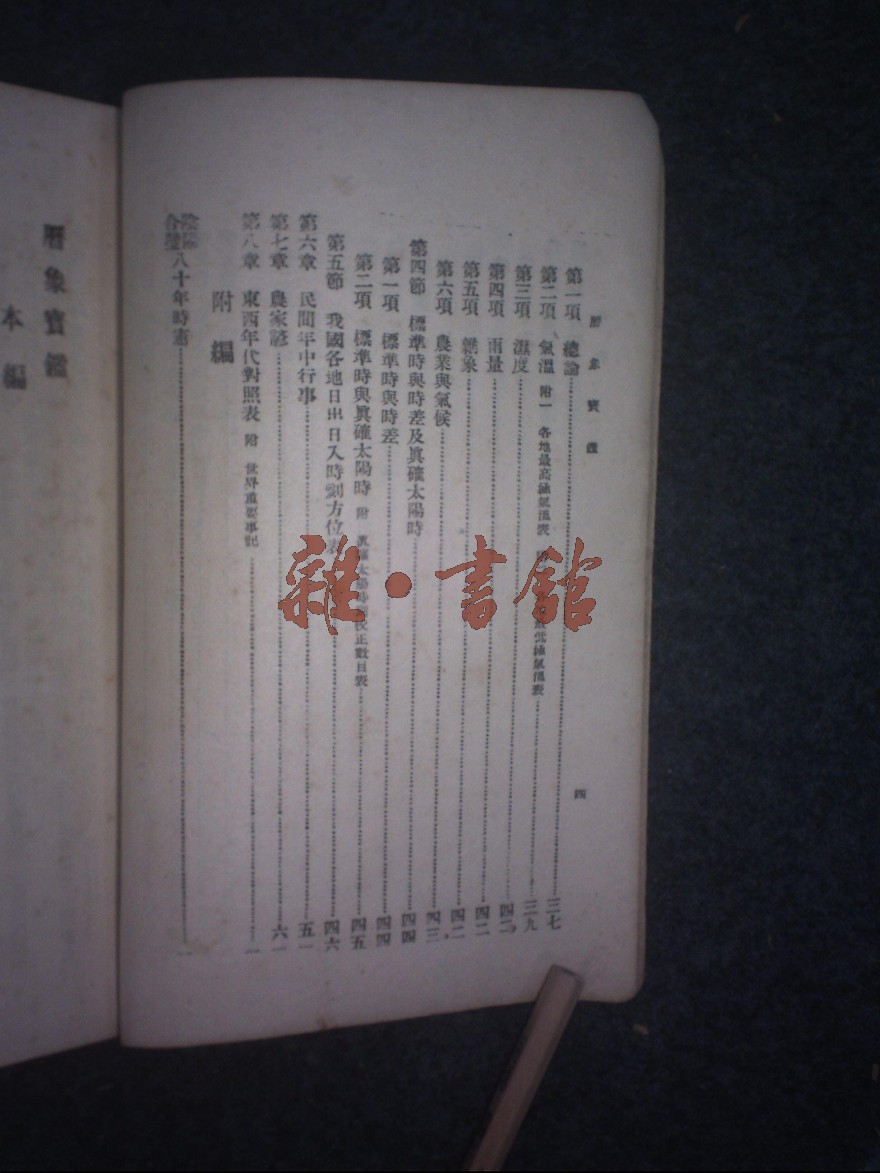 曆象寶鑑
四
第一項 總論 三七
第二項 氣溫 附一 各地最高極氣溫表 最低極氣溫表 三九
第三項 濕度 四二
第四項 雨量 四二
第五項 四二
第六項 農業與氣候 四三
第四節 標準時與時差及眞確太陽時 四四
第一項 標準時與時差 四四
第二項 標準時與眞確太陽時 附 眞確太陽時 校正數目表 四五
第五節 我國各地日出日入時刻方位表 四六
第六章 民間年中行事 五一
第七章 農家諺 六一
第八章 東西年代對照表 附 世界重要事記 一
附編
陰陽合璧八十年時憲 一
曆象寶鑑
本編
雜·書館